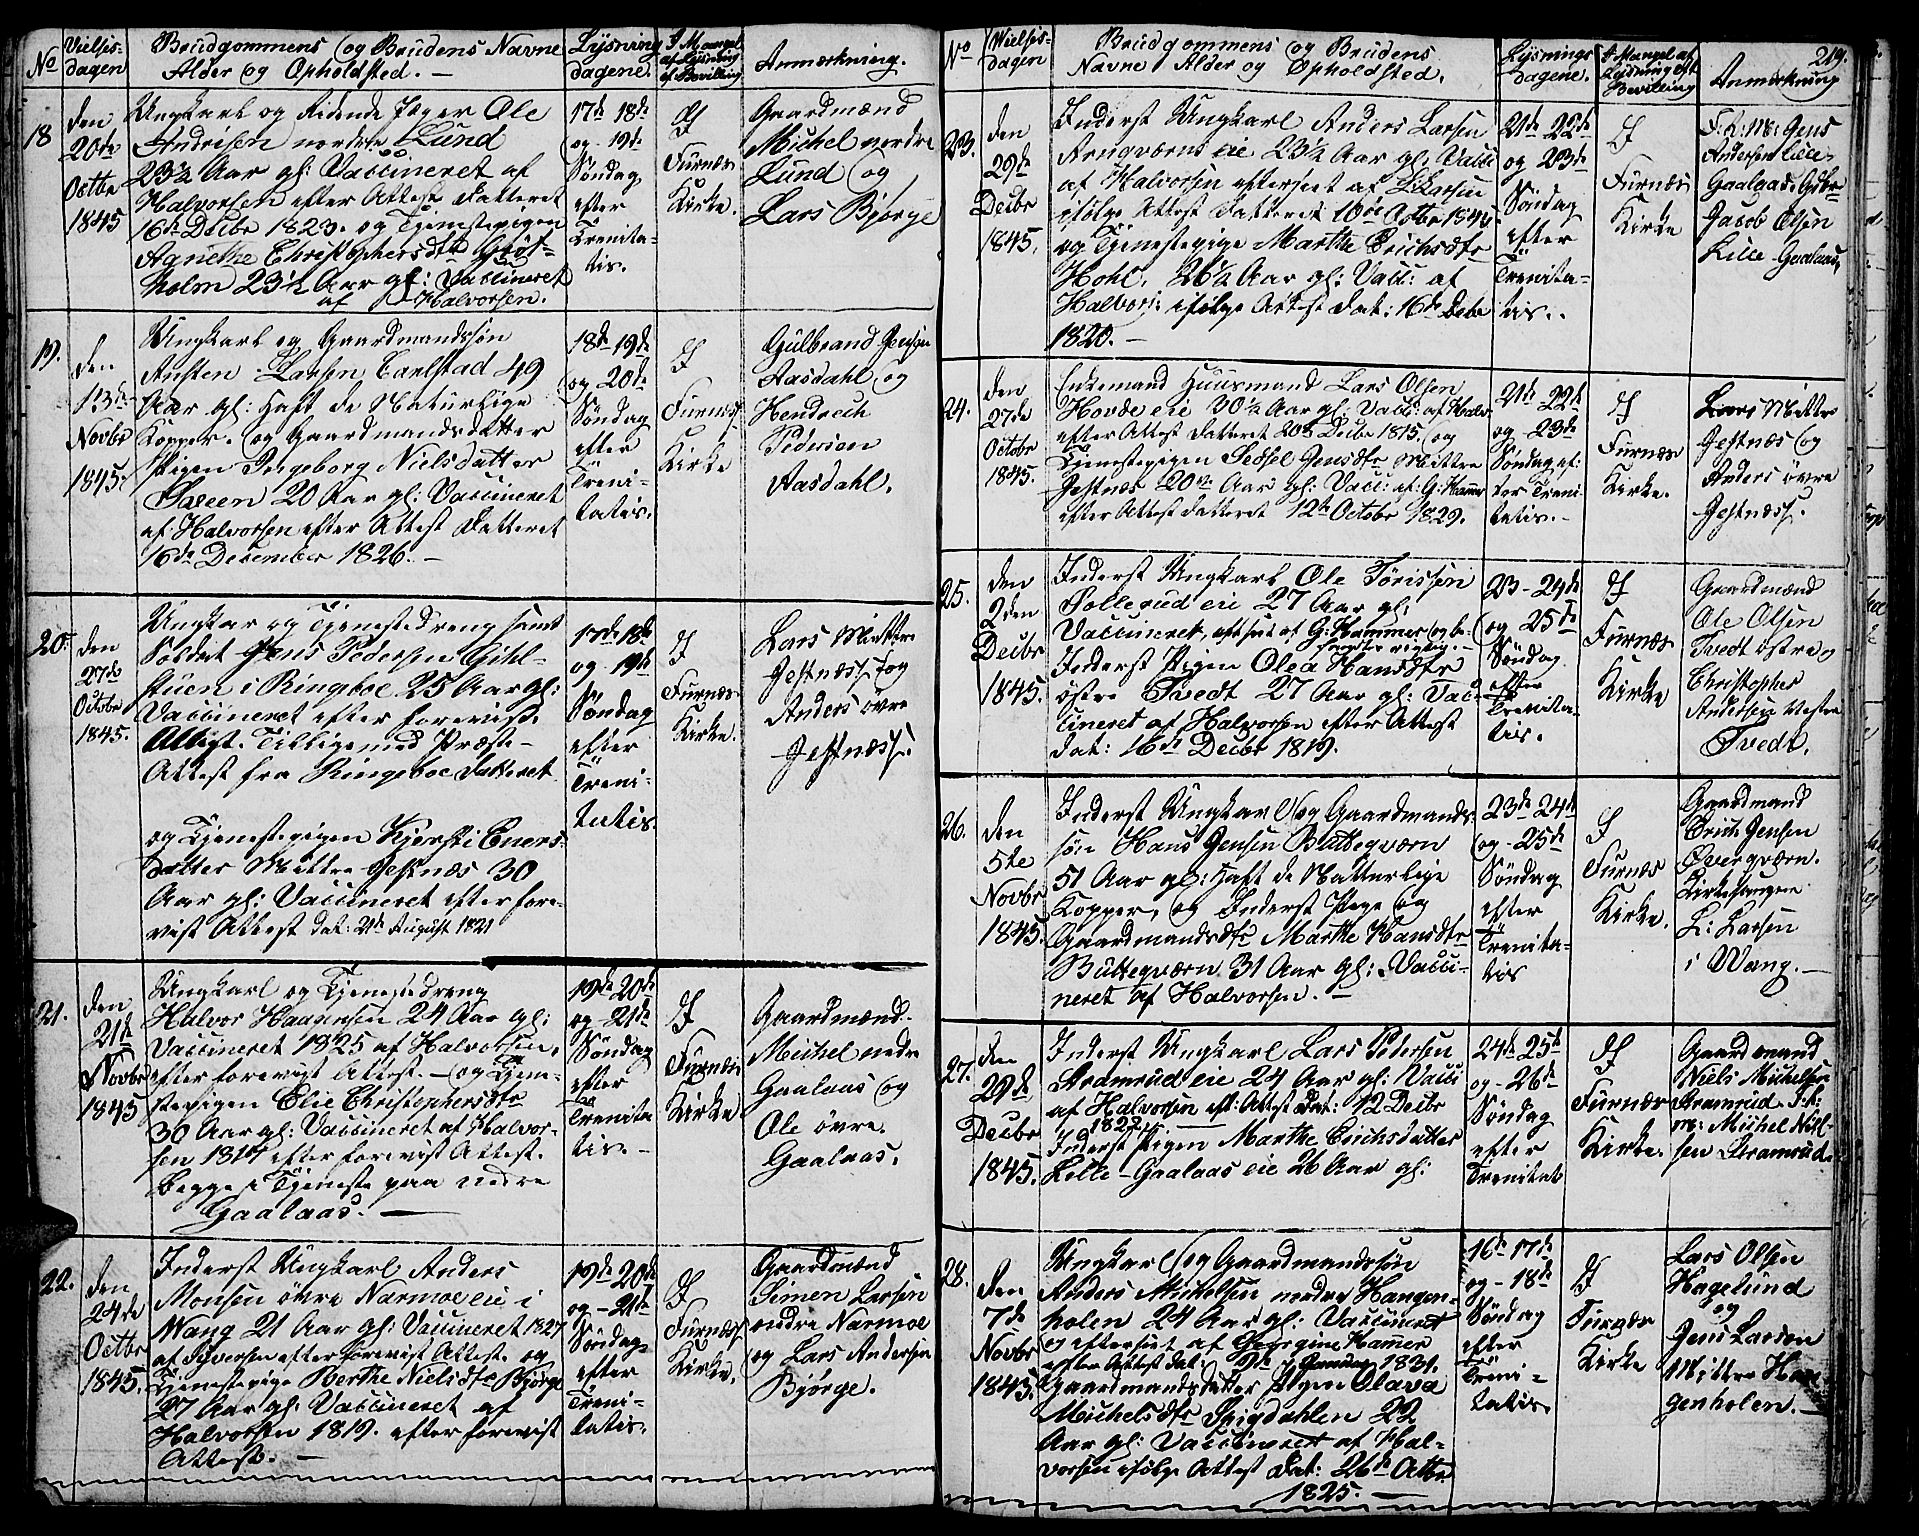 No
Vielses-
dagen
Brudgommens og Brudens Navne
Alder og Opholdsted. —
Lysning
dagene.
I Mangel
af Lysning
af Bevilling
Anmerkning.
18
den
20de
Octbr
1845
Ungkarl og Ridende Jæger Ole
Andrisen nordre Lund
23½ Aar gl: Vaccineret af
Halvorsen efter Attest Datteret
16de Decbr 1823. og Tjenestepigen
Agnethe Christophersdtr
holm 23½ Aar gl: Vaccineret
af Halvorsen.
17de 18de
og 19de
Søndag
efter
Trenita-
tis.
I
Furnæs
Kirke.
Gaardmænd
Michel nordre
Lund og
Lars Bjørge
19.
den
13de
Novbr
1845.
Ungkarl og Gaardmandssøn
Austen Larsen Carlstad 49
Aar gl: Haft de Naturlige
Kopper. og Gaardmandsdatter
Pigen Ingeborg Nielsdatter
Sveen 20 Aar gl: Vaccineret
af Halvorsen efter Attest Datteret
16de December 1826. —
18de 19de
og 20de
Søndag
efter
Treni-
tatis.
I
Furnæs
Kirke
Gulbrand Jensen
Aasdahl og
Hendrech
Pedersen
Aasdahl.
20.
den
27de
Octobr
1845.
Ungkar og Tjenestedreng samt
Soldat Jens Pedersen Gihl-
stuen i Ringeboe 25 Aar gl:
Vaccineret efter foreviist
Attest. Tilligemed Præste-
Attest fra Ringeboe Datteret
og Tjenestepigen Kjersti Eners-
datter Mittre Jessnæs 30
Aar gl: Vaccineret efter fore-
vist Attest dat: 21de August 1821
17de 18de
og 19de
Søndag
efter
Treni-
tatis.
I
Furnæs
Kirke.
Lars Mittre
Jessnæs og
Anders övre
Jessnæs.
21.
den
21de
Novbr
1845
Ungkarl og Tjenestedreng
Halvor Haagensen 24 Aar gl:
Vaccineret 1825 af Halvorsen,
efter forevist Attest. — og Tjene-
stepigen Elie Christophersdtr
30 Aar gl: Vaccineret af Halvor-
sen 1814 efter forevist Attest.
begge i Tjeneste paa nedre
Gaalaas. —
19de 20de
og 21de
Søndag
efter
Trenita
tis. -
I
Furnæs
Kirke
Gaardmænd.
Michel nedre
Gaalaas og
Ole övre
Gaalaas.
22.
den
24de
Octbr
1845.
Inderst Ungkarl Anders
Monsen övre Narmoe eie i
Wang 21 Aar gl: Vaccineret 1827
af Syversen efter forevist Attest. og
Tjenestepige Berthe Nielsdtr Bjørge
27 Aar gl: Vaccineret af
Halvorsen 1819. efter forevist
Attest. —
19de 20de
og - 21de
Søndag
efter
Treni-
tatis.
I
Furnæs
Kirke.
Gaardmænd
Simen Larsen
ondre Narmoe
og Lars Andersen
Bjørge.
219.
No
Vielses-
dagen
Brudgommens og Brudens
Navne Alder og Opholdsted.
Lysnings
dagene.
I Mangel af
Lysning af
Bevilling
Anmerkning
23.
den
29de
Decbr
1845.
Inderst Ungkarl Anders Larsen
Arnqværns eie 23½ Aar gl: Vacci
af Halvorsen efterseet af L. Larsen
ifølge Attest Datteret 10de Octbr 1845
og Tjenestepige Marthe Erichsdtr
Hohl. 26½ Aar gl: Vacc: af
Halvors: ifølge Attest Dat: 16de Decbr
1820. —
21de 22de
og 23de
Søndag
efter
Trenita-
tis.
I
Furnæs
Kirke
Jens
Andersen Lille
Gaalaas
Jacob Olsen
Lille Gaalaas
24.
den
27de
Octobr
1845.
Enkemand Huusmand Lars Olsen
Hovde eie 30½ Aar gl: Vacci: af Halv
efter Attest Datteret 20de Decbr 1815. og
Tjenestepigen Sedsel Jensdtr Mittre
Jessnæs 20 Aar gl: Vacc: af: G: Hamer
efter Attest Datteret 12te Octobr 1829.
21de 22de
og 23de
Søndag ef-
ter Treni-
tatis. -
I
Furnæs
Kirke.
Lars Mittre
Jessnæs og
Anders övre
Jessnæss.
25.
den
2den
Decbr
1845.
Inderst Ungkarl Ole Törissen
Sollerud eie 27 Aar gl:
Vaccineret, efterseet af G: Hammer og be-
fandtes rigtig. —
Inderst Pigen Olea Hansdtr
östre Tvedt 27 Aar gl: Vac-
cineret af Halvorsen efter Attest
Dat: 16de Decbr 1819.
23 - 24de
og 25de
Søndag
efter
Trenita-
tis.
I
Furnæs
Kirke
Gaardmænd
Ole Olsen
Tvedt östre og
Christopher
Andersen Vestre
Tvedt.
26.
den
5te
Novbr
1845.
Inderst Ungkar og Gaardmands-
søn Hans Jensen Butteqværn
51 Aar gl: Haft de Natterlige
Kopper, og Inderst Pige og
Gaardmandsdtr Marthe Hansdtr
Butteqværn 31 Aar gl: Vacci-
neret af Halvorsen. —
23de 24de
og - 25de
Søndag
efter
Trenita-
tis
I
Furnæs
Kirke.
Gaardmand
Erich Jensen
Øverqværn.
Kirkesanger
L: Larsen
i Wang. —
27.
den
29de
Decbr
1845.
Inderst Ungkarl Lars Pedersen
Stramrud eie 24 Aar gl: Vacci
af Halvorsen eft: Attest Dat: 12 Decbr
1822.
Inderst Pigen Marthe Erichsdatter
Lille-Gaalaas eie 26 Aar gl:
24de 25de
og - 26de
Søndag
efter
Trenitat
I
Furnæs
Kirke.
Gaardmand
Niels Michelsen
Stramrud
Michel Niel-
sen Stramrud.
28.
den
7de
Novbr
1845.
Ungkarl og Gaardmandssøn
Anders Michelsen nordre Hangen-
holen 24 Aar gl: Vaccineret
og efterseet af Georgine Hamer
efter Attest dat: 9de 1831.
Gaardmandsdatter Pigen Olava
Michelsdtr Spigdahlen 22
Aar gl: Vaccineret af Hal-
vorsen ifølge Attest Dat: 26de Octbr
1825. —
16de 17de
og - 18de
Søndag
efter
Treni-
tatis.
I
Furnæs
Kirke
Lars Olsen
Hagelund
og
Jens Larsen
Mittre Han
genholen. —